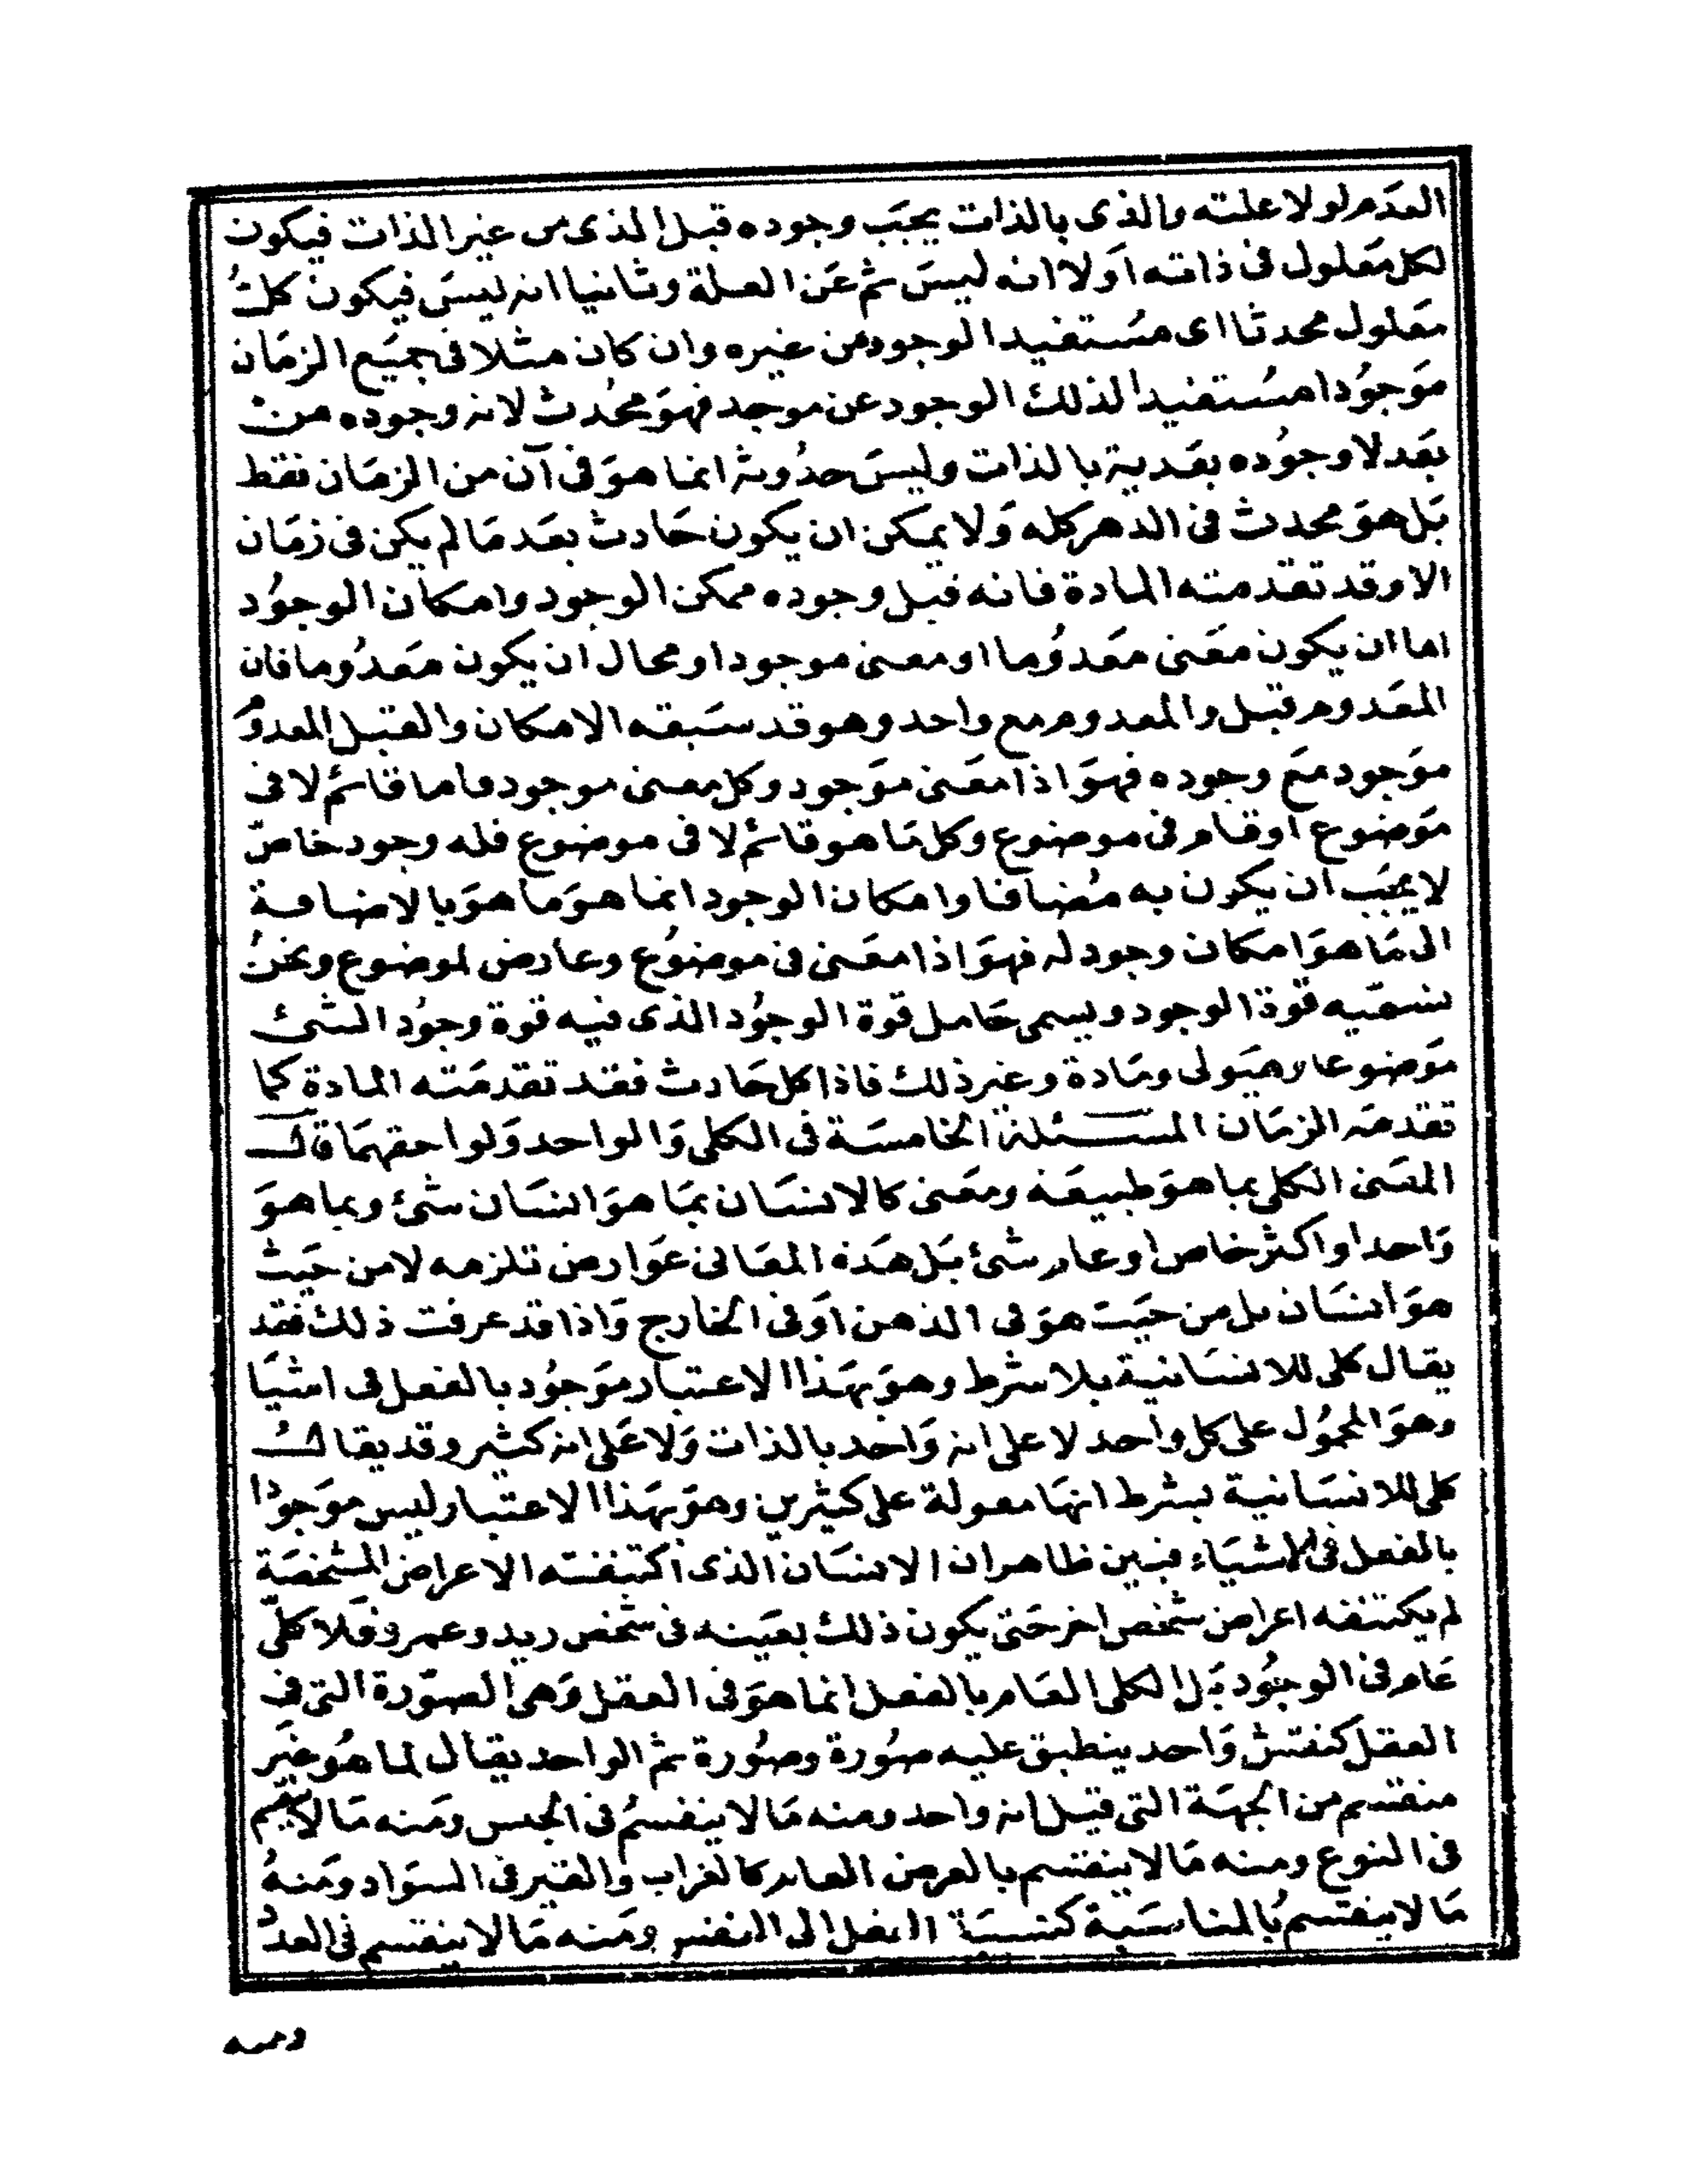 العدم لولا علته والذى بالذات يجب وجوده قبل الذى من غير الذات فيكون
لكل معلول فى ذاته اولا انه ليس ثم عن العلة وثانيا انه ليس فيكون كل
معلول محدثا اى مستفيد الوجود من غيره وان كان مثلا فى جميع الزمان
موجودا مستفيدا لذلك الوجود عن موجد فهو محدث لانه وجوده من
بعد لا وجوده بعدية بالذات وليس حدوثه انما هو فى آن من الزمان فقط
بل هو محدث فى الدهر كله ولا يمكن ان يكون حادث بعد ما لم يكن فى زمان
الا وقد تقدمته المادة فانه قبل وجوده ممكن الوجود وامكان الوجود
اما ان يكون معنى معدوما او معنى موجودا ومحال ان يكون معدوما فان
المعدوم قبل والمعدوم مع واحد وهو قد سبقه الامكان والقبل المعدوم
موجود مع وجوده فهو اذا معنى موجود وكل معنى موجود فاما قائم لا فى
موضوع او قام فى موضوع وكل ما هو قائم لا فى موضوع فله وجود خاص
لا يجب ان يكون به مضافا وامكان الوجود انما هو ما هو بالاضافة
الى ما هو امكان وجود له فهو اذا معنى فى موضوع وعارض لموضوع ونحن
نسميه قوة الوجود ويسمى حامل قوة الوجود الذى فيه قوة وجود الشئ
موضوعا وهيولى ومادة وغير ذلك فاذا كل حادث فقد تقدمته المادة كما
تقدمه الزمان المسئلة الخامسة فى الكلى والواحد ولواحقهما قال
المعنى الكلى بما هو طبيعه ومعنى كالانسان بما هو انسان شئ وبما هو
واحد او اكثر خاص او عام شئ بل هذه المعانى عوارض تلزمه لا من حيث
هو انسان بل من حيث هو فى الذهن او فى الخارج واذا قد عرفت ذلك فقد
يقال كلى للانسانية بلا شرط وهو بهذا الاعتبار موجود بالفعل فى اشيا
وهو المحمول على كل واحد لا على انه واحد بالذات ولا على انه كثير وقد يقال
كلى للانسانية بشرط انها مقولة على كثيرين وهو بهذا الاعتبار ليس موجودا
بالفعل فى الاشياء فبين ظاهر ان الانسان الذى اكتنفته الاعراض المشخصة
لم يكتنفه اعراض شخص اخر حتى يكون ذلك بعينه فى شخص زيد وعمرو فلا كلى
عام فى الوجود بل الكلى العام بالفعل انما هو فى العقل وهى الصورة التى فى
العقل كنقش واحد ينطبق عليه صورة وصورة ثم الواحد يقال لما هو غير
منقسم من الجهة التى قيل انه واحد ومنه ما لا ينقسم فى الجنس ومنه ما لا ينقسم
فى النوع ومنه ما لا ينقسم بالعرض العام كالغراب والقير فى السواد ومنه
ما لا ينقسم بالمناسبة كنسبة العقل الى النفس ومنه ما لا ينقسم فى العدد
ومنه